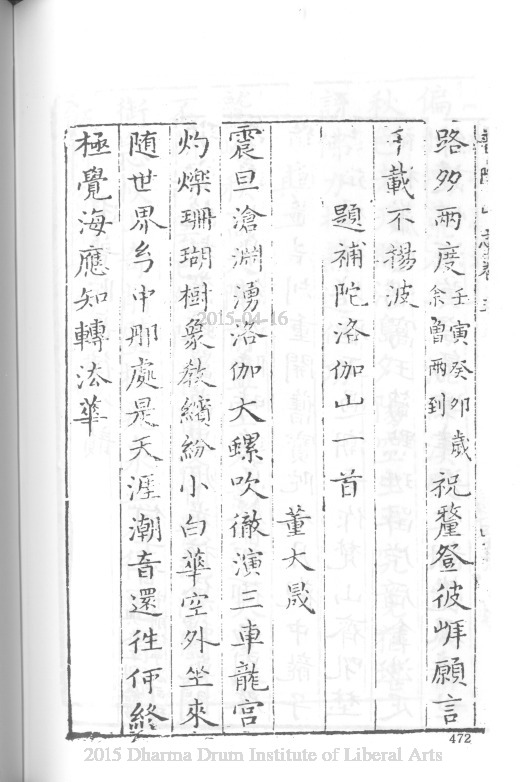 普陀山志卷五
路夘兩度壬寅癸夘歲余曽兩到祝釐登彼崕願言
千載不揚波
題補陀洛伽山一首
董大晟
震旦滄淵湧洛伽大螺吹徹演三車龍宮
灼爍珊瑚樹象教繽紛小白華空外坐來
随世界㝵中那處是天涯潮音還徃何終
極覺海應知轉法華
472
2015-04-16
2015 Dharma Drum Institute of Liberal Arts